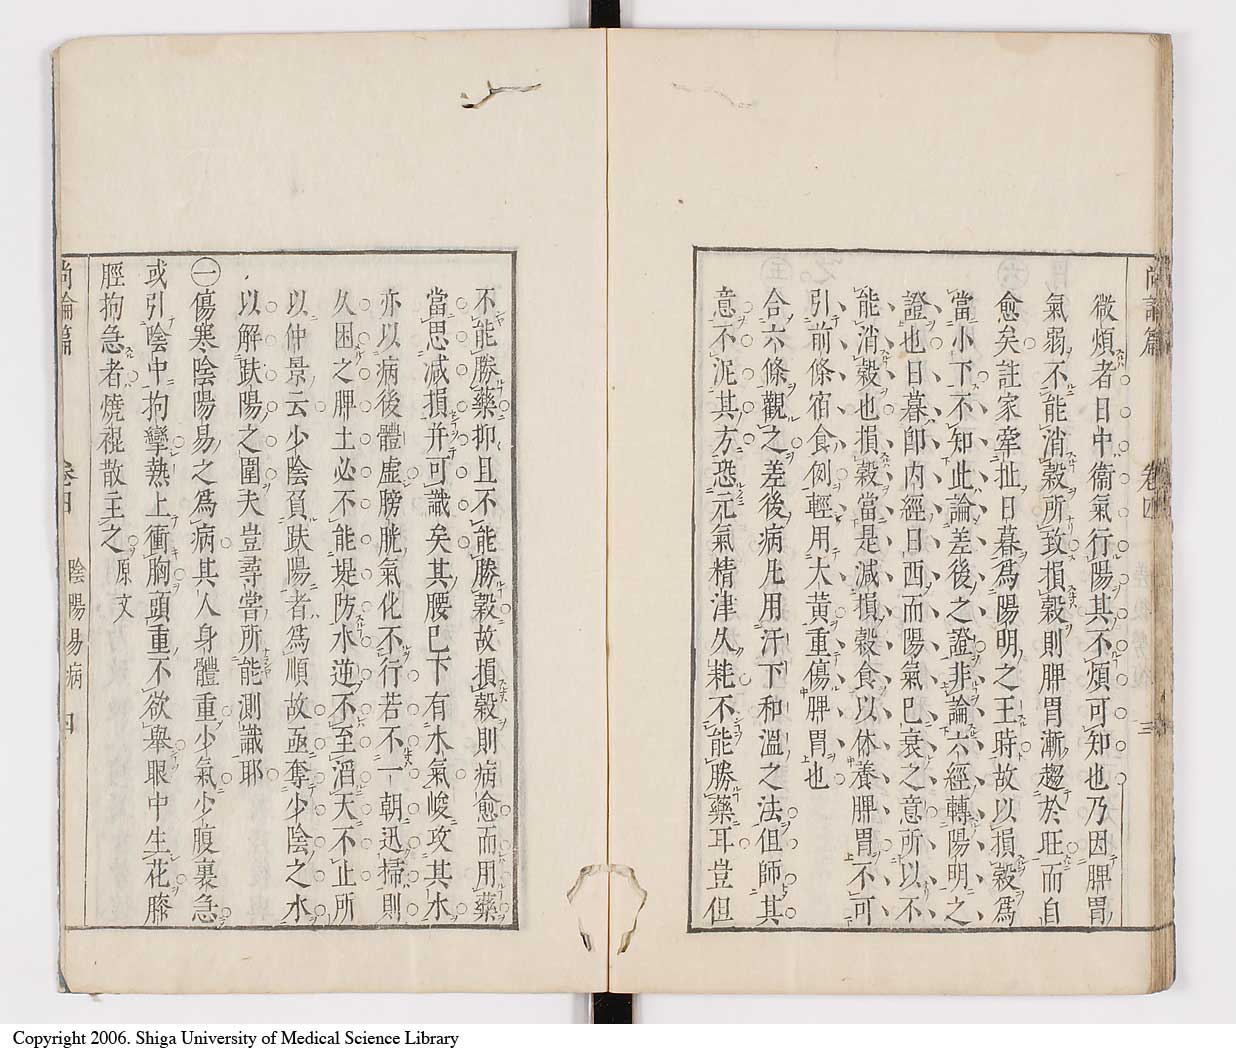 尚論篇 卷四 三
微煩者日中衞氣行陽其不煩可知也乃因脾胃
氣弱不能消穀所致損穀則脾胃漸趨於旺而自
愈矣註家牽扯日暮爲陽明之王時故以損穀爲
當小下不知此論差後之證非論六經轉陽明之
證也日暮卽內經日西而陽氣已衰之意所以不
能消穀也損穀當是減損穀食以休養脾胃不可
引前條宿食例輕用大黃重傷脾胃也
合六條觀之差後病凡用汗下和溫之法但師其
意不泥其方恐元氣精津久耗不能勝藥耳豈但
不能勝藥抑且不能勝穀故損穀則病愈而用藥
當思減損并可識矣其腰已下有水氣峻攻其水
亦以病後體虛膀胱氣化不行若不一朝迅掃則
久困之脾土必不能堤防水逆不至滔天不止所
以仲景云少陰負趺陽者爲順故亟奪少陰之水
以解趺陽之圍夫豈尋常所能測識耶
㊀傷寒陰陽易之爲病其人身體重少氣少腹裏急
或引陰中拘攣熱上衝胸頭重不欲舉眼中生花膝
脛拘急者燒裩散主之原文
尚論篇 卷四 陰陽易病 四
Copyright 2006. Shiga University of Medical Science Library